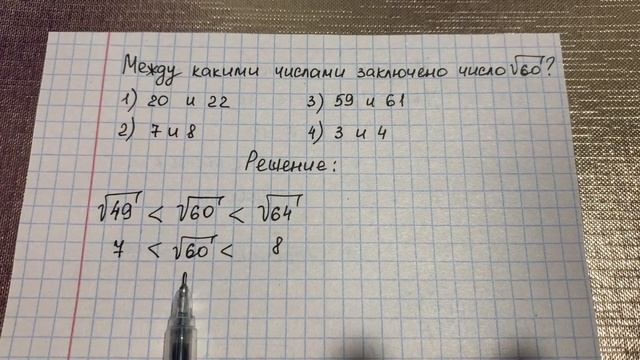 Между какими числами заключено число √60?
1) 20 и 22 3) 59 и 61
2) 7 и 8 4) 3 и 4
Решение:
√49 < √60 < √64
7 < √60 < 8